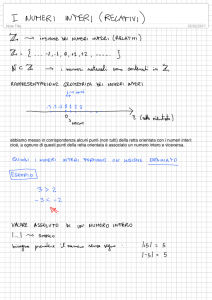 I NUMERI INTERI (RELATIVI)
Note Title
ℤ → INSIEME DEI NUMERI INTERI (RELATIVI)
ℤ = { ..... -2, -1, 0, +1, +2, ...... }
ℕ ⊂ ℤ → i numeri naturali sono contenuti in ℤ
RAPPRESENTAZIONE GEOMETRICA DEI NUMERI INTERI
0
ORIGINE
abbiamo messo in corrispondenza alcuni punti (non tutti) della retta orientata con i numeri interi:
cioè, a ognuno di questi punti della retta orientata è associato un numero intero e viceversa.
QUINDI I NUMERI INTERI FORMANO UN INSIEME ORDINATO
ESEMPIO
3 > 2
-3 < -2
VALORE ASSOLUTO DI UN NUMERO INTERO
|...| → SIMBOLO
bisogna prendere il numero senza segno
|+5| = 5
|-5| = 5